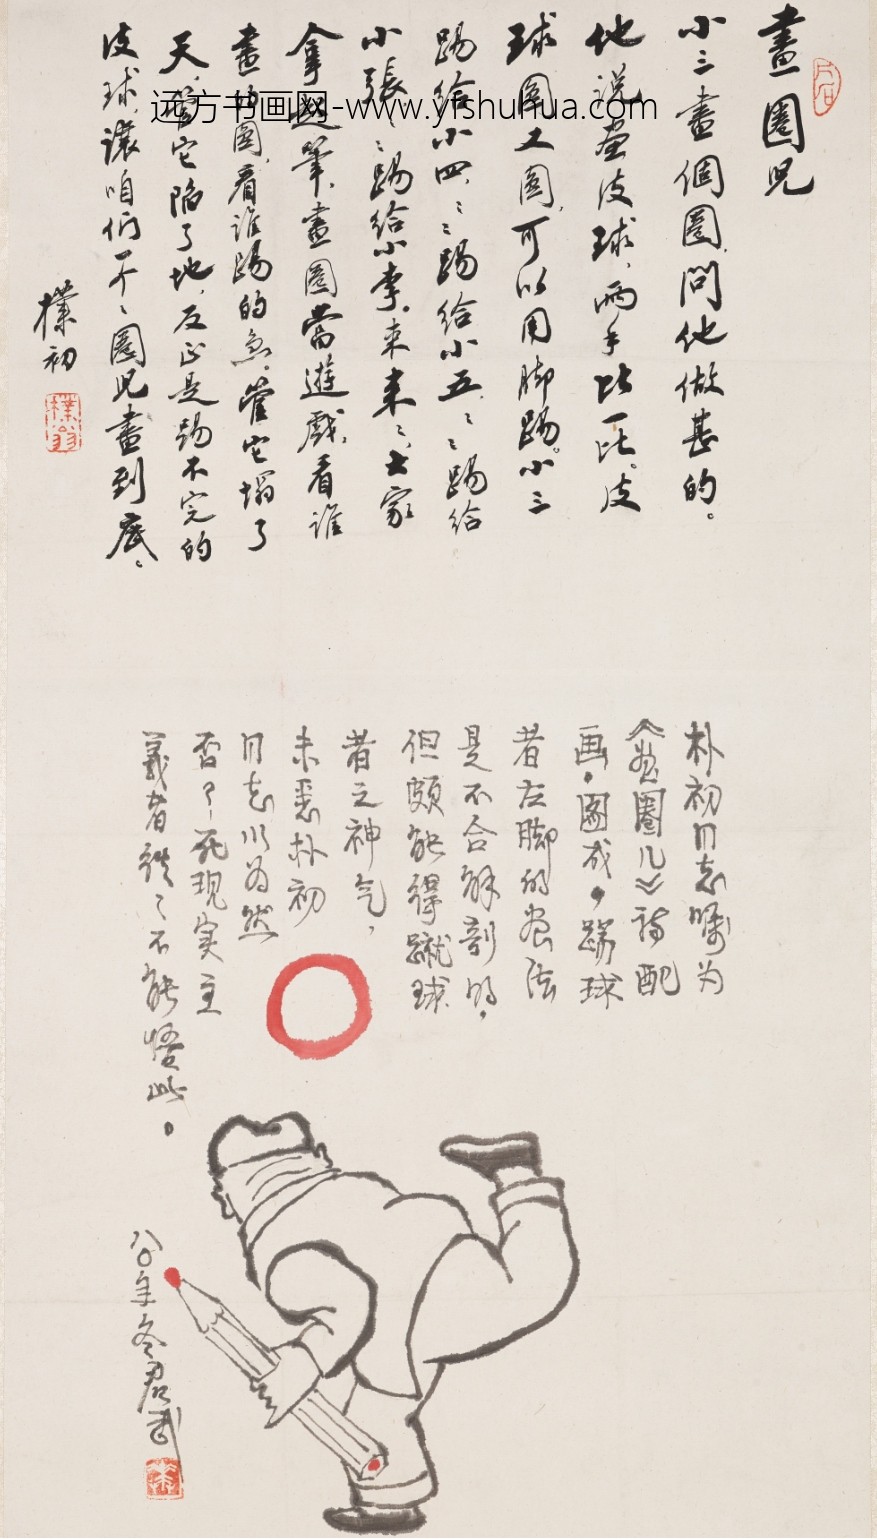 畫圈兒
小三畫個圈,問他做甚的。
他说画皮球,兩手比一比。皮
球圓又圓,可以用脚踢。小三
踢给小四,〻〻踢给小五,〻〻踢给
小張,〻〻踢给小李。来来〻,大家
拿起筆,畫圈當遊戲,看誰
畫的圓,看誰踢的急。管它塌了
天,管它陷了地,反正是踢不完的
皮球,讓咱們一个〻圈兒畫到底。
樸初
樸翁
远方书画网-www.yfshuhua.com
朴初同志嘱为
《画圈儿》诗配
画,图成,踢球
者左脚的画法
是不合解剖的,
但颇能得蹴球
者之神气,
未悉朴初
同志以为然
否?死现实主
義者往〻不能悟此。
八〇年冬君武